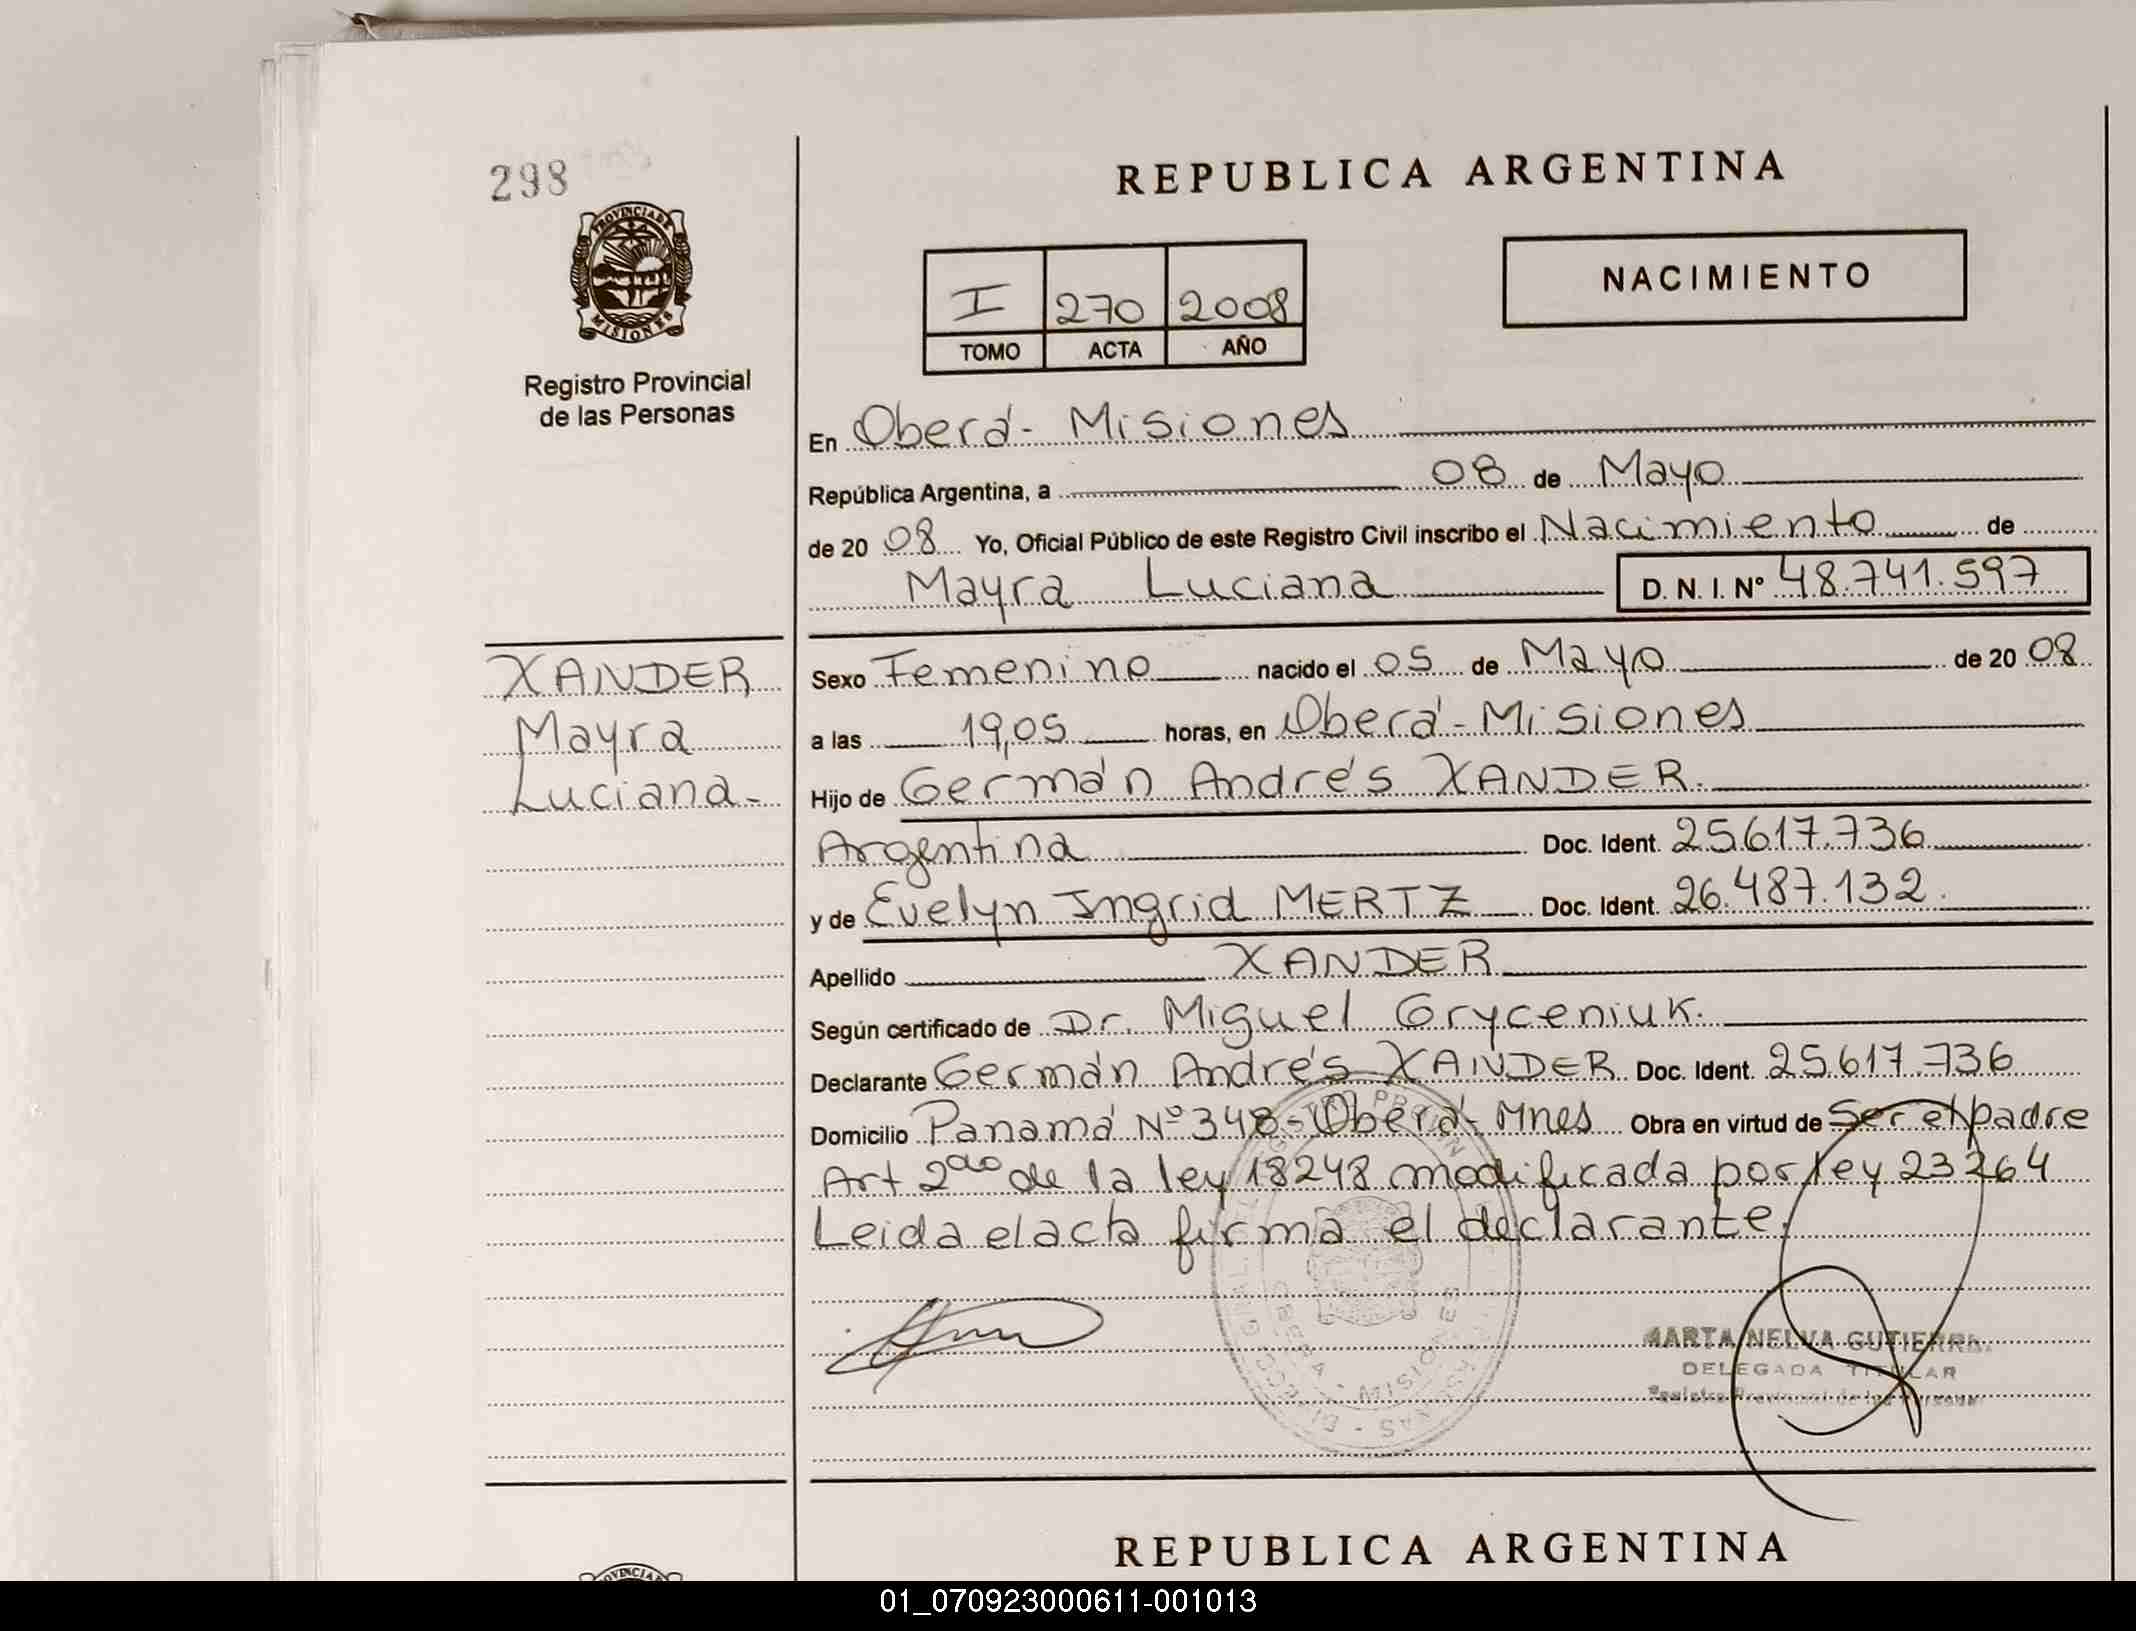 298
PROVINCIA DE
MISIONES
Registro Provincial
de las Personas
REPUBLICA ARGENTINA
NACIMIENTO
I 270 2008
TOMO ACTA AÑO
En Oberá - Misiones
República Argentina, a 08 de Mayo
de 20 08 Yo, Oficial Público de este Registro Civil inscribo el Nacimiento de
Mayra Luciana D. N. I. Nº 48.741.597
XANDER
Mayra
Luciana-
Sexo Femenino nacido el 05 de Mayo de 20 08
a las 19,05 horas, en Oberá - Misiones
Hijo de Germán Andrés XANDER.
Argentina Doc. Ident. 25.617.736
y de Evelyn Ingrid MERTZ Doc. Ident. 26.487.132.
Apellido XANDER
Según certificado de Dr. Miguel Gryceniuk.
Declarante Germán Andrés XANDER Doc. Ident. 25.617.736
Domicilio Panamá Nº 348 - Oberá - Mnes Obra en virtud de Ser el padre
Art 2do de la ley 18248 modificada por ley 23264
Leida el acta firma el declarante.
OBERA - MISIONES
MARTA NELVA
DELEGADA TITULAR
Registro Provincial de las Personas
REPUBLICA ARGENTINA
PROVINCIA
01_070923000611-001013